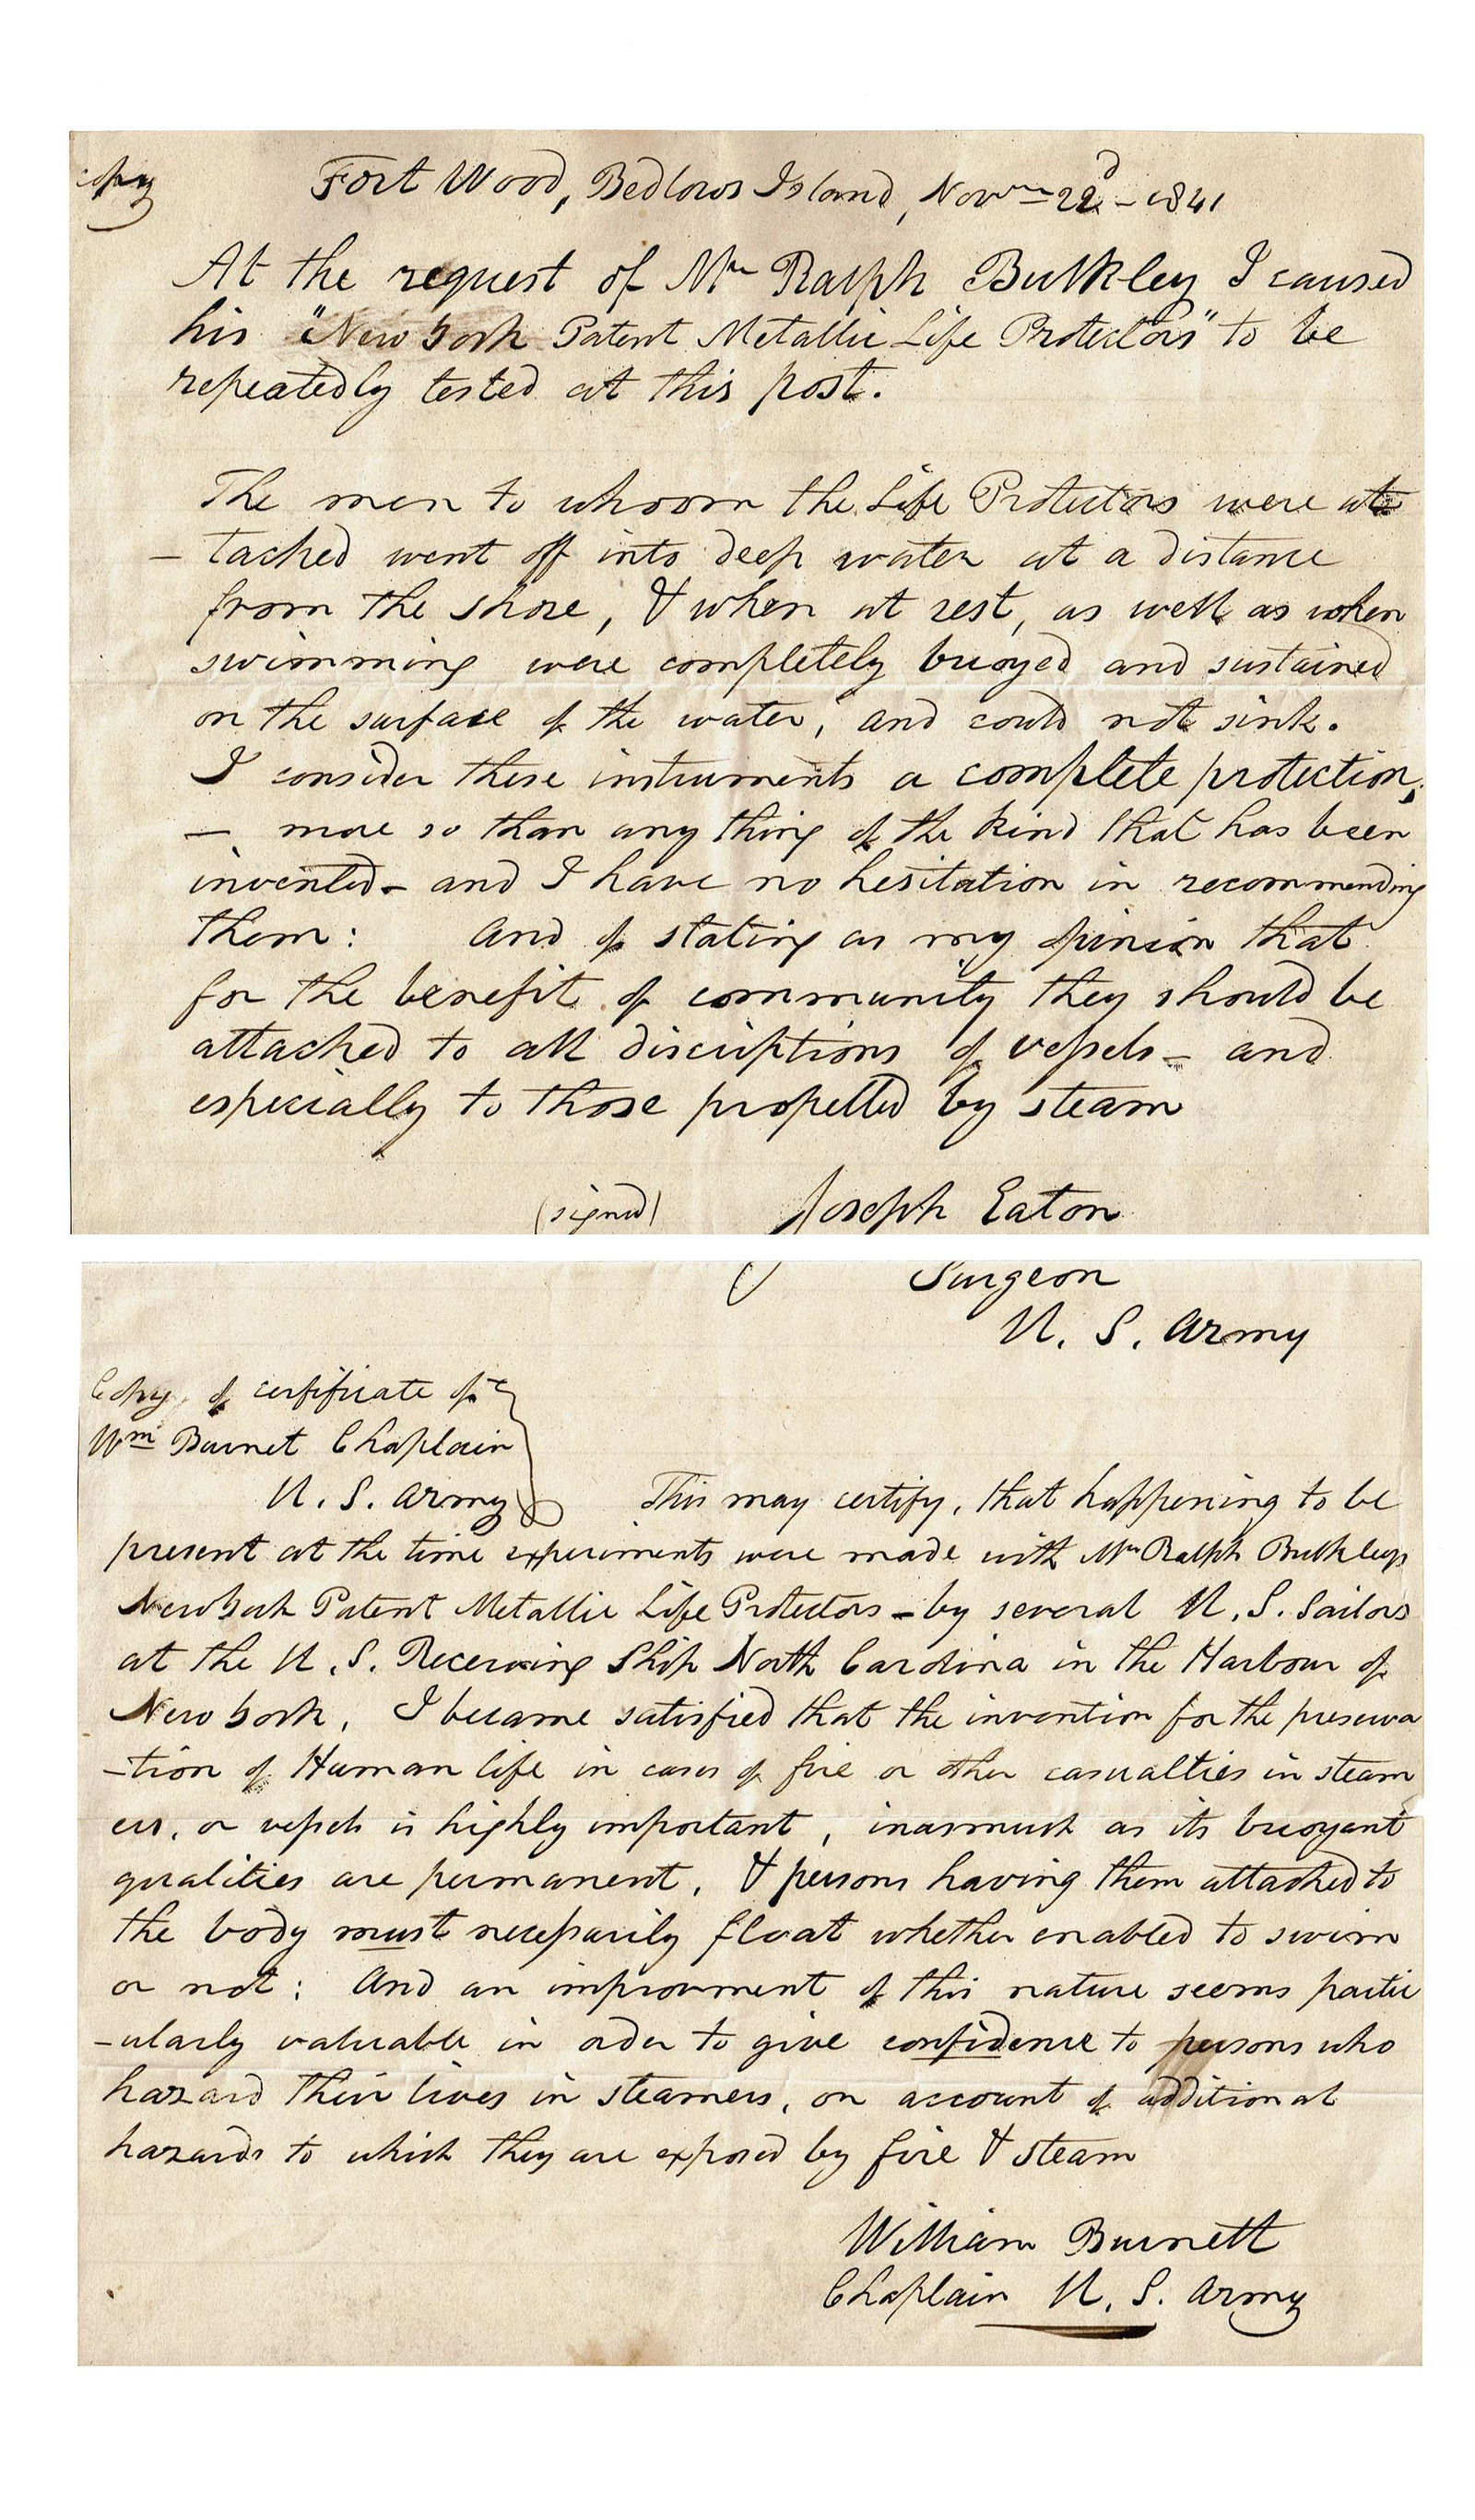 copy
Fort Wood, Bedlows Island, Novm 22d - 1841
At the request of Mr Ralph Bulkley I caused
his "New York Patent Metallic Life Protectors" to be
repeatedly tested at this post.
The men to whoom the Life Protectors were at
- tached went off into deep water at a distance
from the shore, & when at rest, as well as when
swimming were completely buoyed and sustained
on the surface of the water, and could not sink.
I consider these instruments a complete protection,
- more so than any thing of the kind that has been
invented - and I have no hesitation in recommending
them: And of stating as my opinion that
for the benefit of community they should be
attached to all discriptions of vessels - and
especially to those propelled by steam
(signed) Joseph Eaton
Surgeon
U. S. Army
Copy of certificate of
Wm Burnet Chaplain
U. S. Army
This may certify, that happening to be
present at the time experiments were made with Mr Ralph Bulkleys
New York Patent Metallic Life Protectors - by several U. S. Sailors
at the U. S. Receiving Ship North Carolina in the Harbour of
New York, I became satisfied that the invention for the preserva
-tion of Human life in cases of fire or other casualties in steam
ers, or vessels is highly important, inasmuch as its buoyant
qualities are permanent, & persons having them attached to
the body must necessarily float whether enabled to swim
or not: And an improvment of this nature seems partic
-ularly valuable in order to give confidence to persons who
hazard their lives in steamers, on account of additional
hazards to which they are exposed by fire & steam
William Burnett
Chaplain U. S. Army